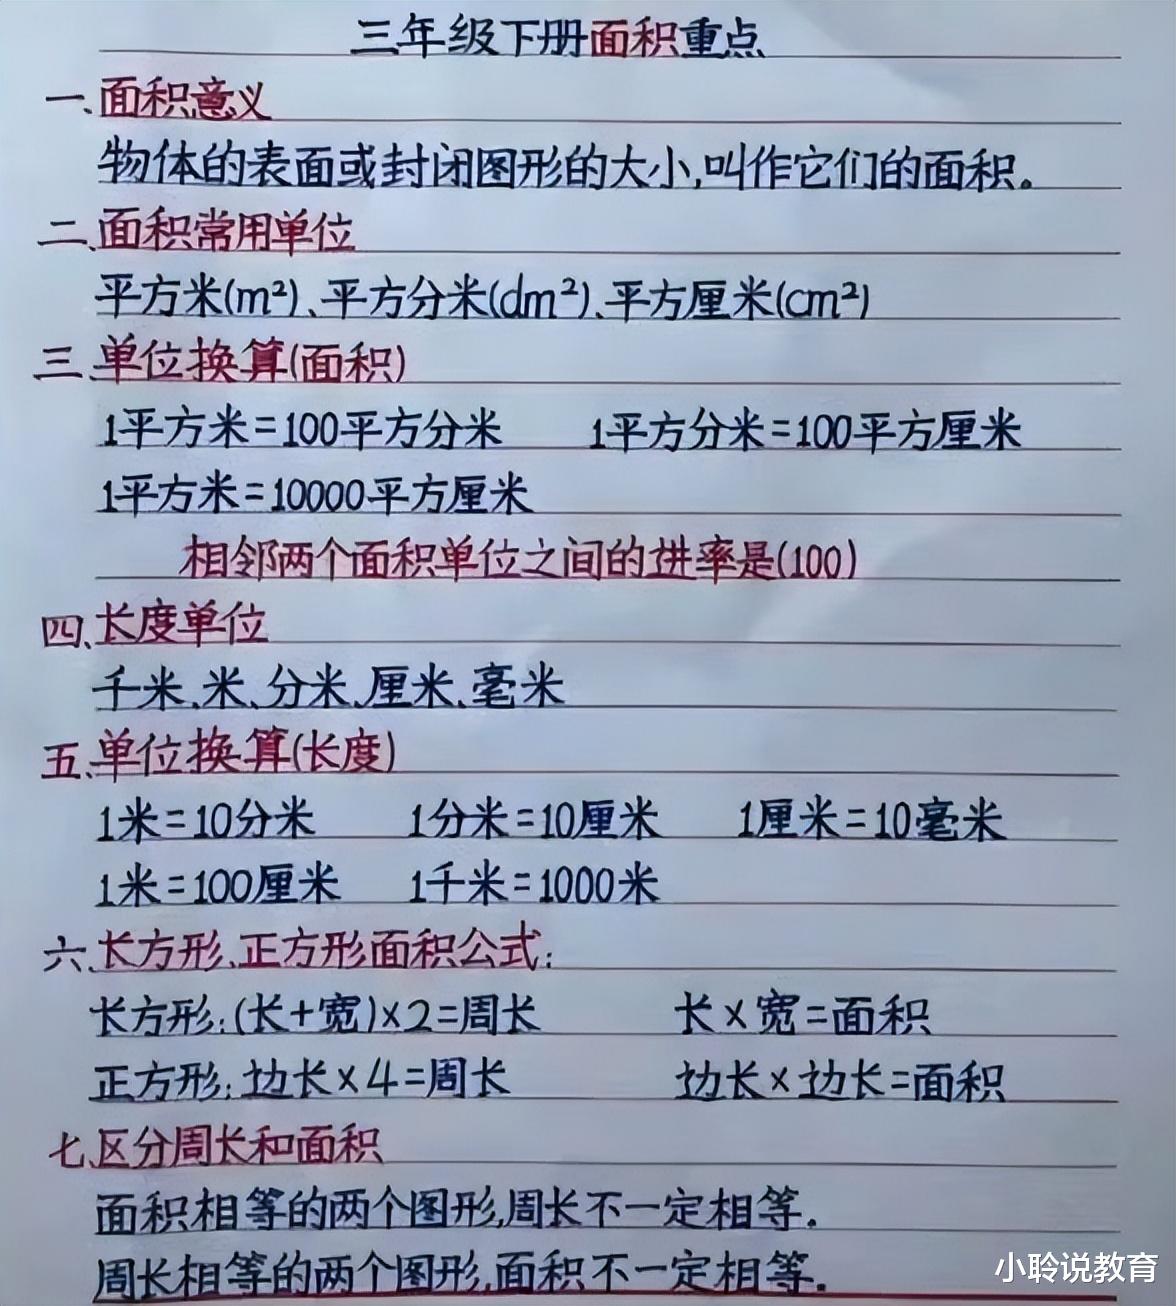 三年级下册面积重点
一、面积意义
物体的表面或封闭图形的大小,叫作它们的面积。
二、面积常用单位
平方米(m²)、平方分米(dm²)、平方厘米(cm²)
三、单位换算(面积)
1平方米=100平方分米 1平方分米=100平方厘米
1平方米=10000平方厘米
相邻两个面积单位之间的进率是(100)
四、长度单位
千米、米、分米、厘米、毫米
五、单位换算(长度)
1米=10分米 1分米=10厘米 1厘米=10毫米
1米=100厘米 1千米=1000米
六、长方形、正方形面积公式:
长方形:(长+宽)×2=周长 长×宽=面积
正方形:边长×4=周长 边长×边长=面积
七、区分周长和面积
面积相等的两个图形,周长不一定相等.
周长相等的两个图形,面积不一定相等.
小聆说教育